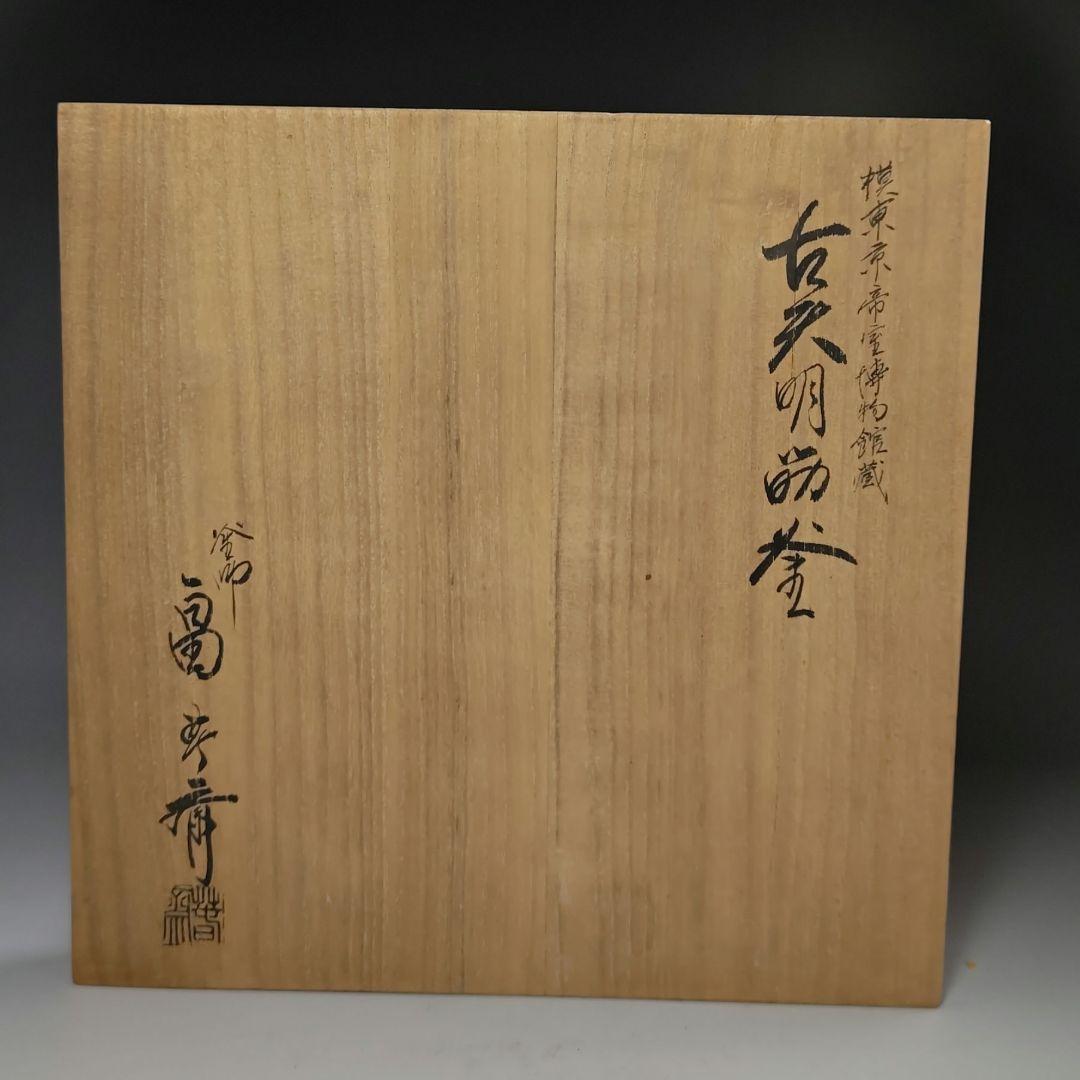 模東京帝室博物館蔵
古天明筋釜
釜師
畠春斎